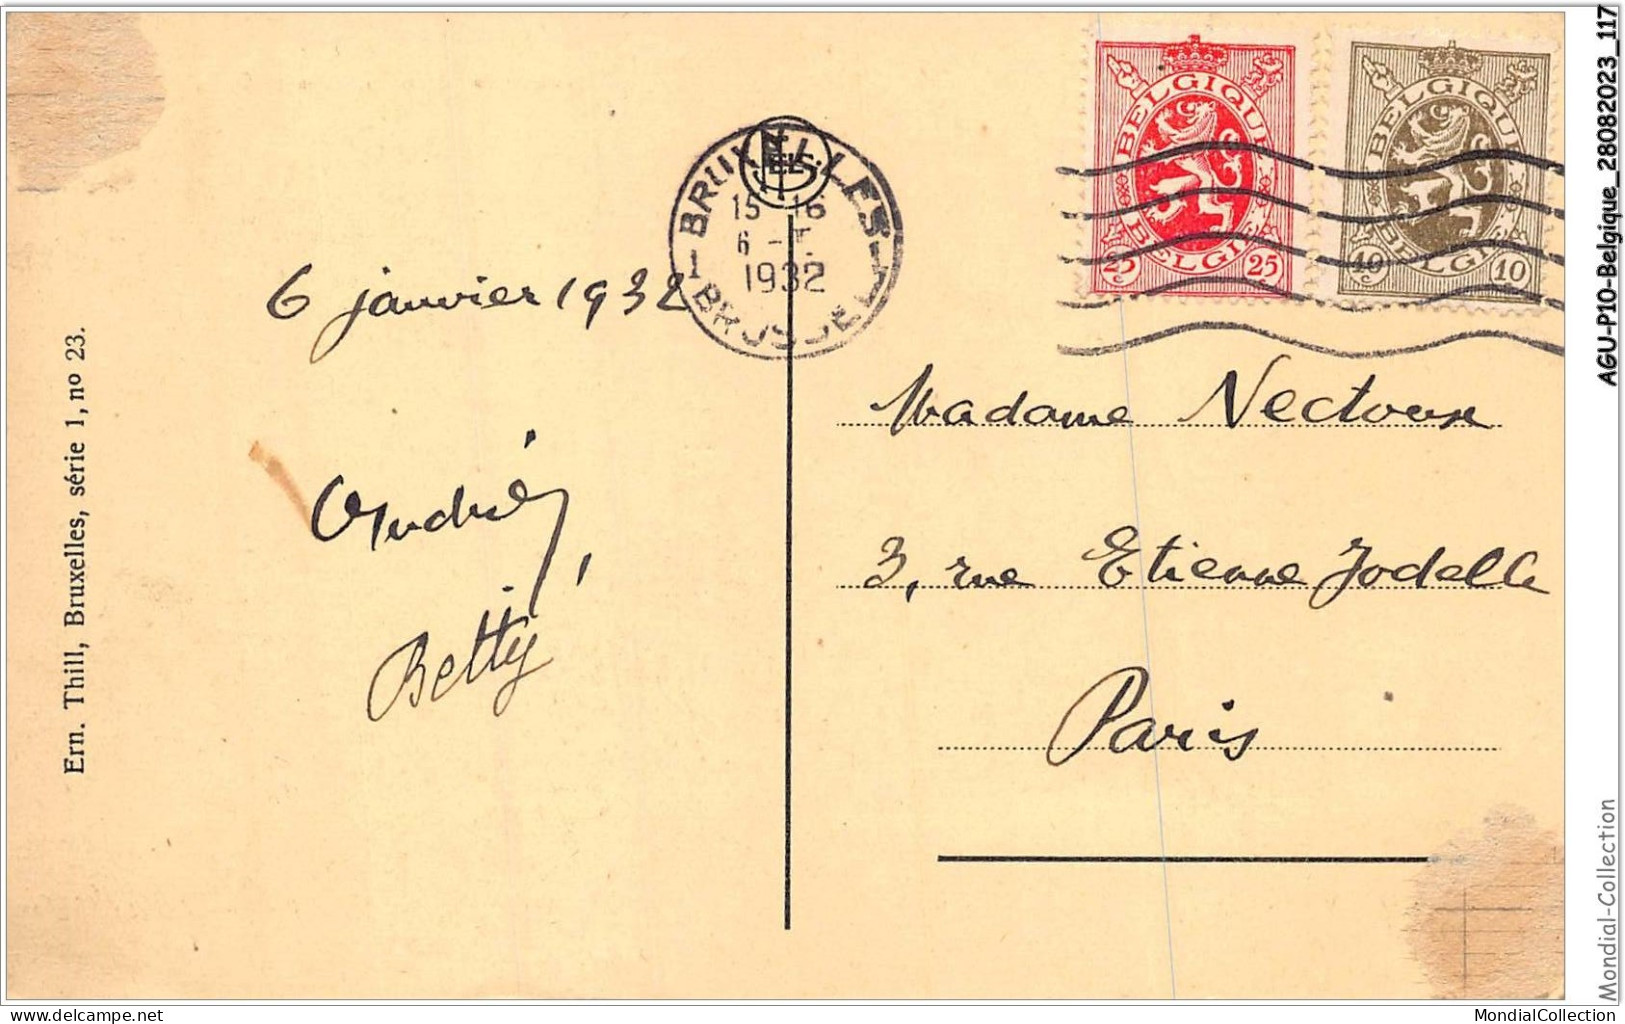 BRUXELLES
NELS
15-16
6 - I
1932
1 BRUSSEL 1
BELGIQUE
BELGIË
25 25
BELGIQUE
BELGIË
10 10
6 janvier 1932
André,
Betty
Madame Nectoux
3, rue Etienne Jodelle
Paris
Ern. Thill, Bruxelles, série 1, no 23.
AGU-P10-Belgique_28082023_117
Mondial-Collection
delcampe.net
MondialCollection